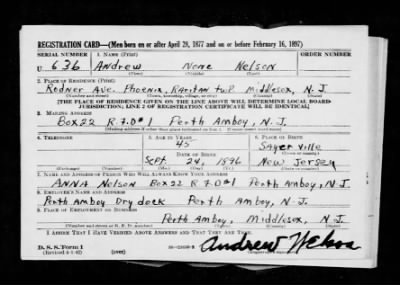 REGISTRATION CARD—(Men born on or after April 28, 1877 and on or before February 16, 1897)
SERIAL NUMBER 1. NAME (Print) ORDER NUMBER
U 636 Andrew None Nelson
(First) (Middle) (Last)
2. PLACE OF RESIDENCE (Print)
Rodner Ave. Phoenix, Raritan twp. Middlesex, N. J.
(Number and street) (Town, township, village, or city) (County) (State)
[THE PLACE OF RESIDENCE GIVEN ON THE LINE ABOVE WILL DETERMINE LOCAL BOARD
JURISDICTION; LINE 2 OF REGISTRATION CERTIFICATE WILL BE IDENTICAL]
3. MAILING ADDRESS
Box 22 R.F.D #1 Perth Amboy, N.J.
[Mailing address if other than place indicated on line 2. If same insert word same]
4. TELEPHONE 5. AGE IN YEARS 6. PLACE OF BIRTH
45 Sayerville
DATE OF BIRTH (Town or county)
Sept. 24, 1896 New Jersey
(Exchange) (Number) (Mo.) (Day) (Yr.) (State or country)
7. NAME AND ADDRESS OF PERSON WHO WILL ALWAYS KNOW YOUR ADDRESS
ANNA Nelson Box 22 R.F.D #1 Perth Amboy, N.J.
8. EMPLOYER'S NAME AND ADDRESS
Perth Amboy Dry dock Perth Amboy, N.J.
9. PLACE OF EMPLOYMENT OR BUSINESS
Perth Amboy, Middlesex, N.J.
(Number and street or R. F. D. number) (Town) (County) (State)
I AFFIRM THAT I HAVE VERIFIED ABOVE ANSWERS AND THAT THEY ARE TRUE.
D. S. S. Form 1
(Revised 4-1-42) (over) Andrew Nelson